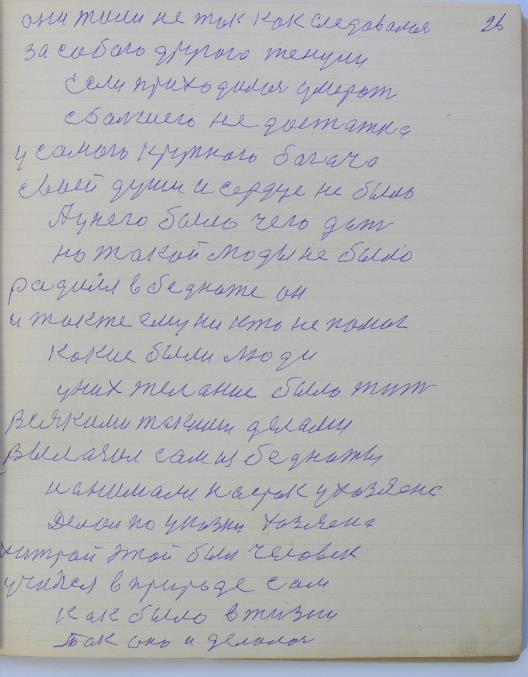 они жили не так как следовался 26
за собого другого женули
если приходился умерат
сбалшего не достатка
у самого крупного богача
своей души и сердце не было
А унего было чего дат
но такой моды не было
радился в бедноте он
и также ему ни кто не помог
какие были люди
у них желание было жит
всякими такими делами
сам из бедноты
нанимали на срок у хозяена
Делал по указки хозяена
хитрай этой был человек
учился в природе сам
как было в жизни
так оно и делалос